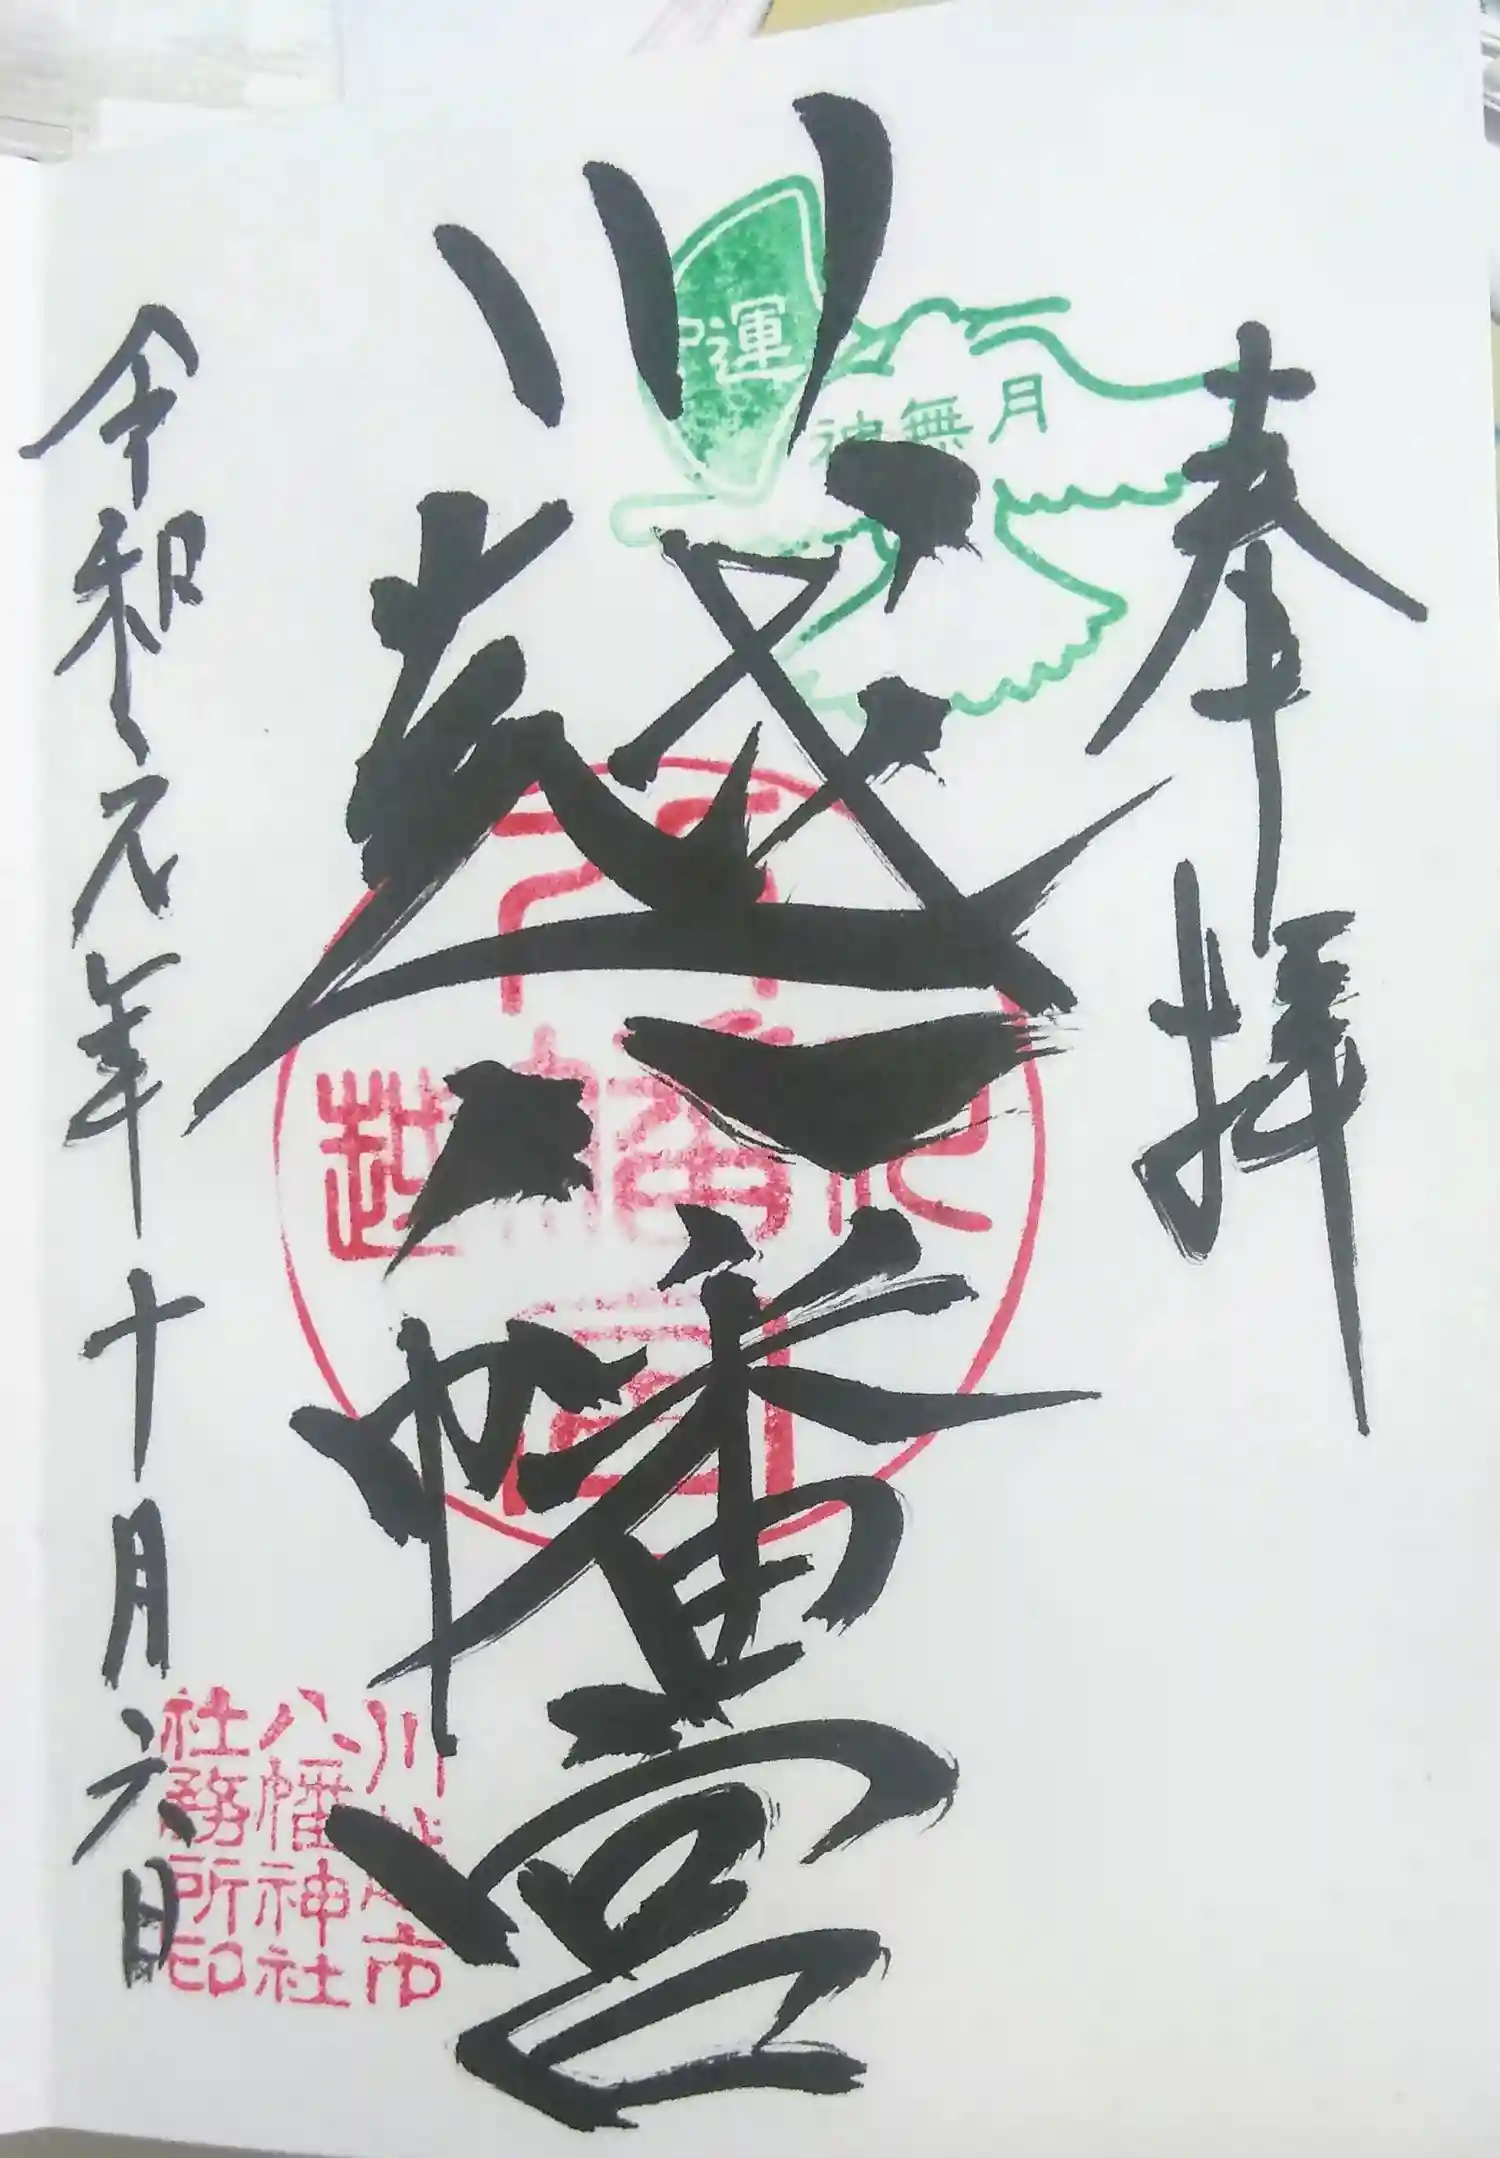 奉拝
月無神
運
川越八幡宮
川越市
八幡神社
社務所印
令和元年十月六日